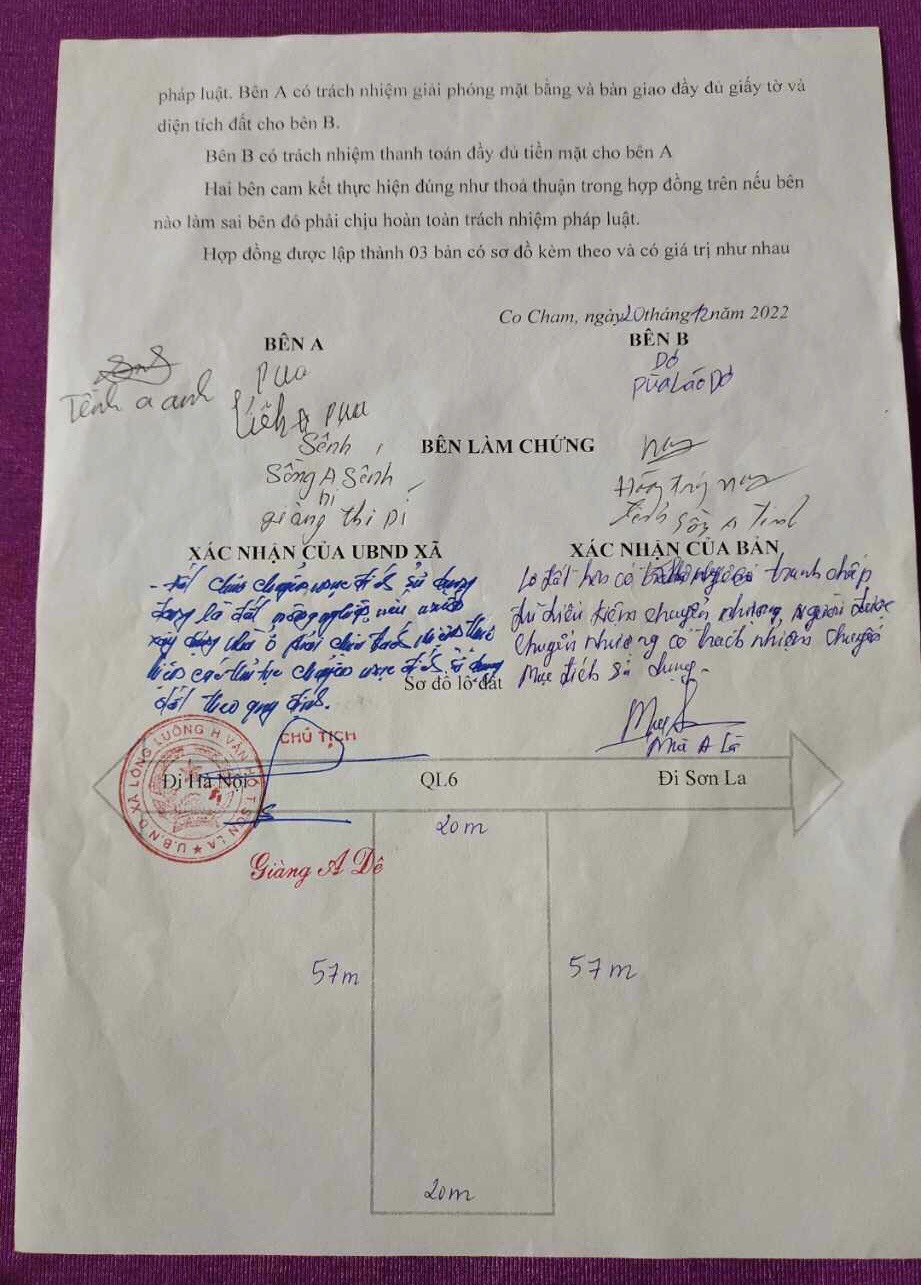 pháp luật. Bên A có trách nhiệm giải phóng mặt bằng và bàn giao đầy đủ giấy tờ và
diện tích đất cho bên B.
Bên B có trách nhiệm thanh toán đầy đủ tiền mặt cho bên A
Hai bên cam kết thực hiện đúng như thoả thuận trong hợp đồng trên nếu bên
nào làm sai bên đó phải chịu hoàn toàn trách nhiệm pháp luật.
Hợp đồng được lập thành 03 bản có sơ đồ kèm theo và có giá trị như nhau
Co Cham, ngày 20 tháng 12 năm 2022
BÊN A
BÊN B
Pua
Dơ
Tếnh a anh
Pùa Láo Dơ
A Pua
Sênh
BÊN LÀM CHỨNG
Nay
Sồng A Sênh
giàng thi Di
Sồng A Tinh
XÁC NHẬN CỦA UBND XÃ
XÁC NHẬN CỦA BẢN
- Đất chưa chuyển mục đích sử dụng
đang là đất nông nghiệp, nếu muốn
xây dựng nhà ở phải
các thủ tục chuyển mục đích sử dụng
đất theo quy định.
Lô đất tranh chấp
đủ điều kiện chuyển nhượng, Người được
chuyển nhượng có trách nhiệm chuyển
Mục đích sử dụng.
Sơ đồ lô đất
CHỦ TỊCH
U.B.N.D XÃ LÓNG LUÔNG H VÂN HỒ T SƠN LA
Mùa A Là
Đi Hà Nội
QL6
Đi Sơn La
20m
Giàng A Dê
57m
57m
20m